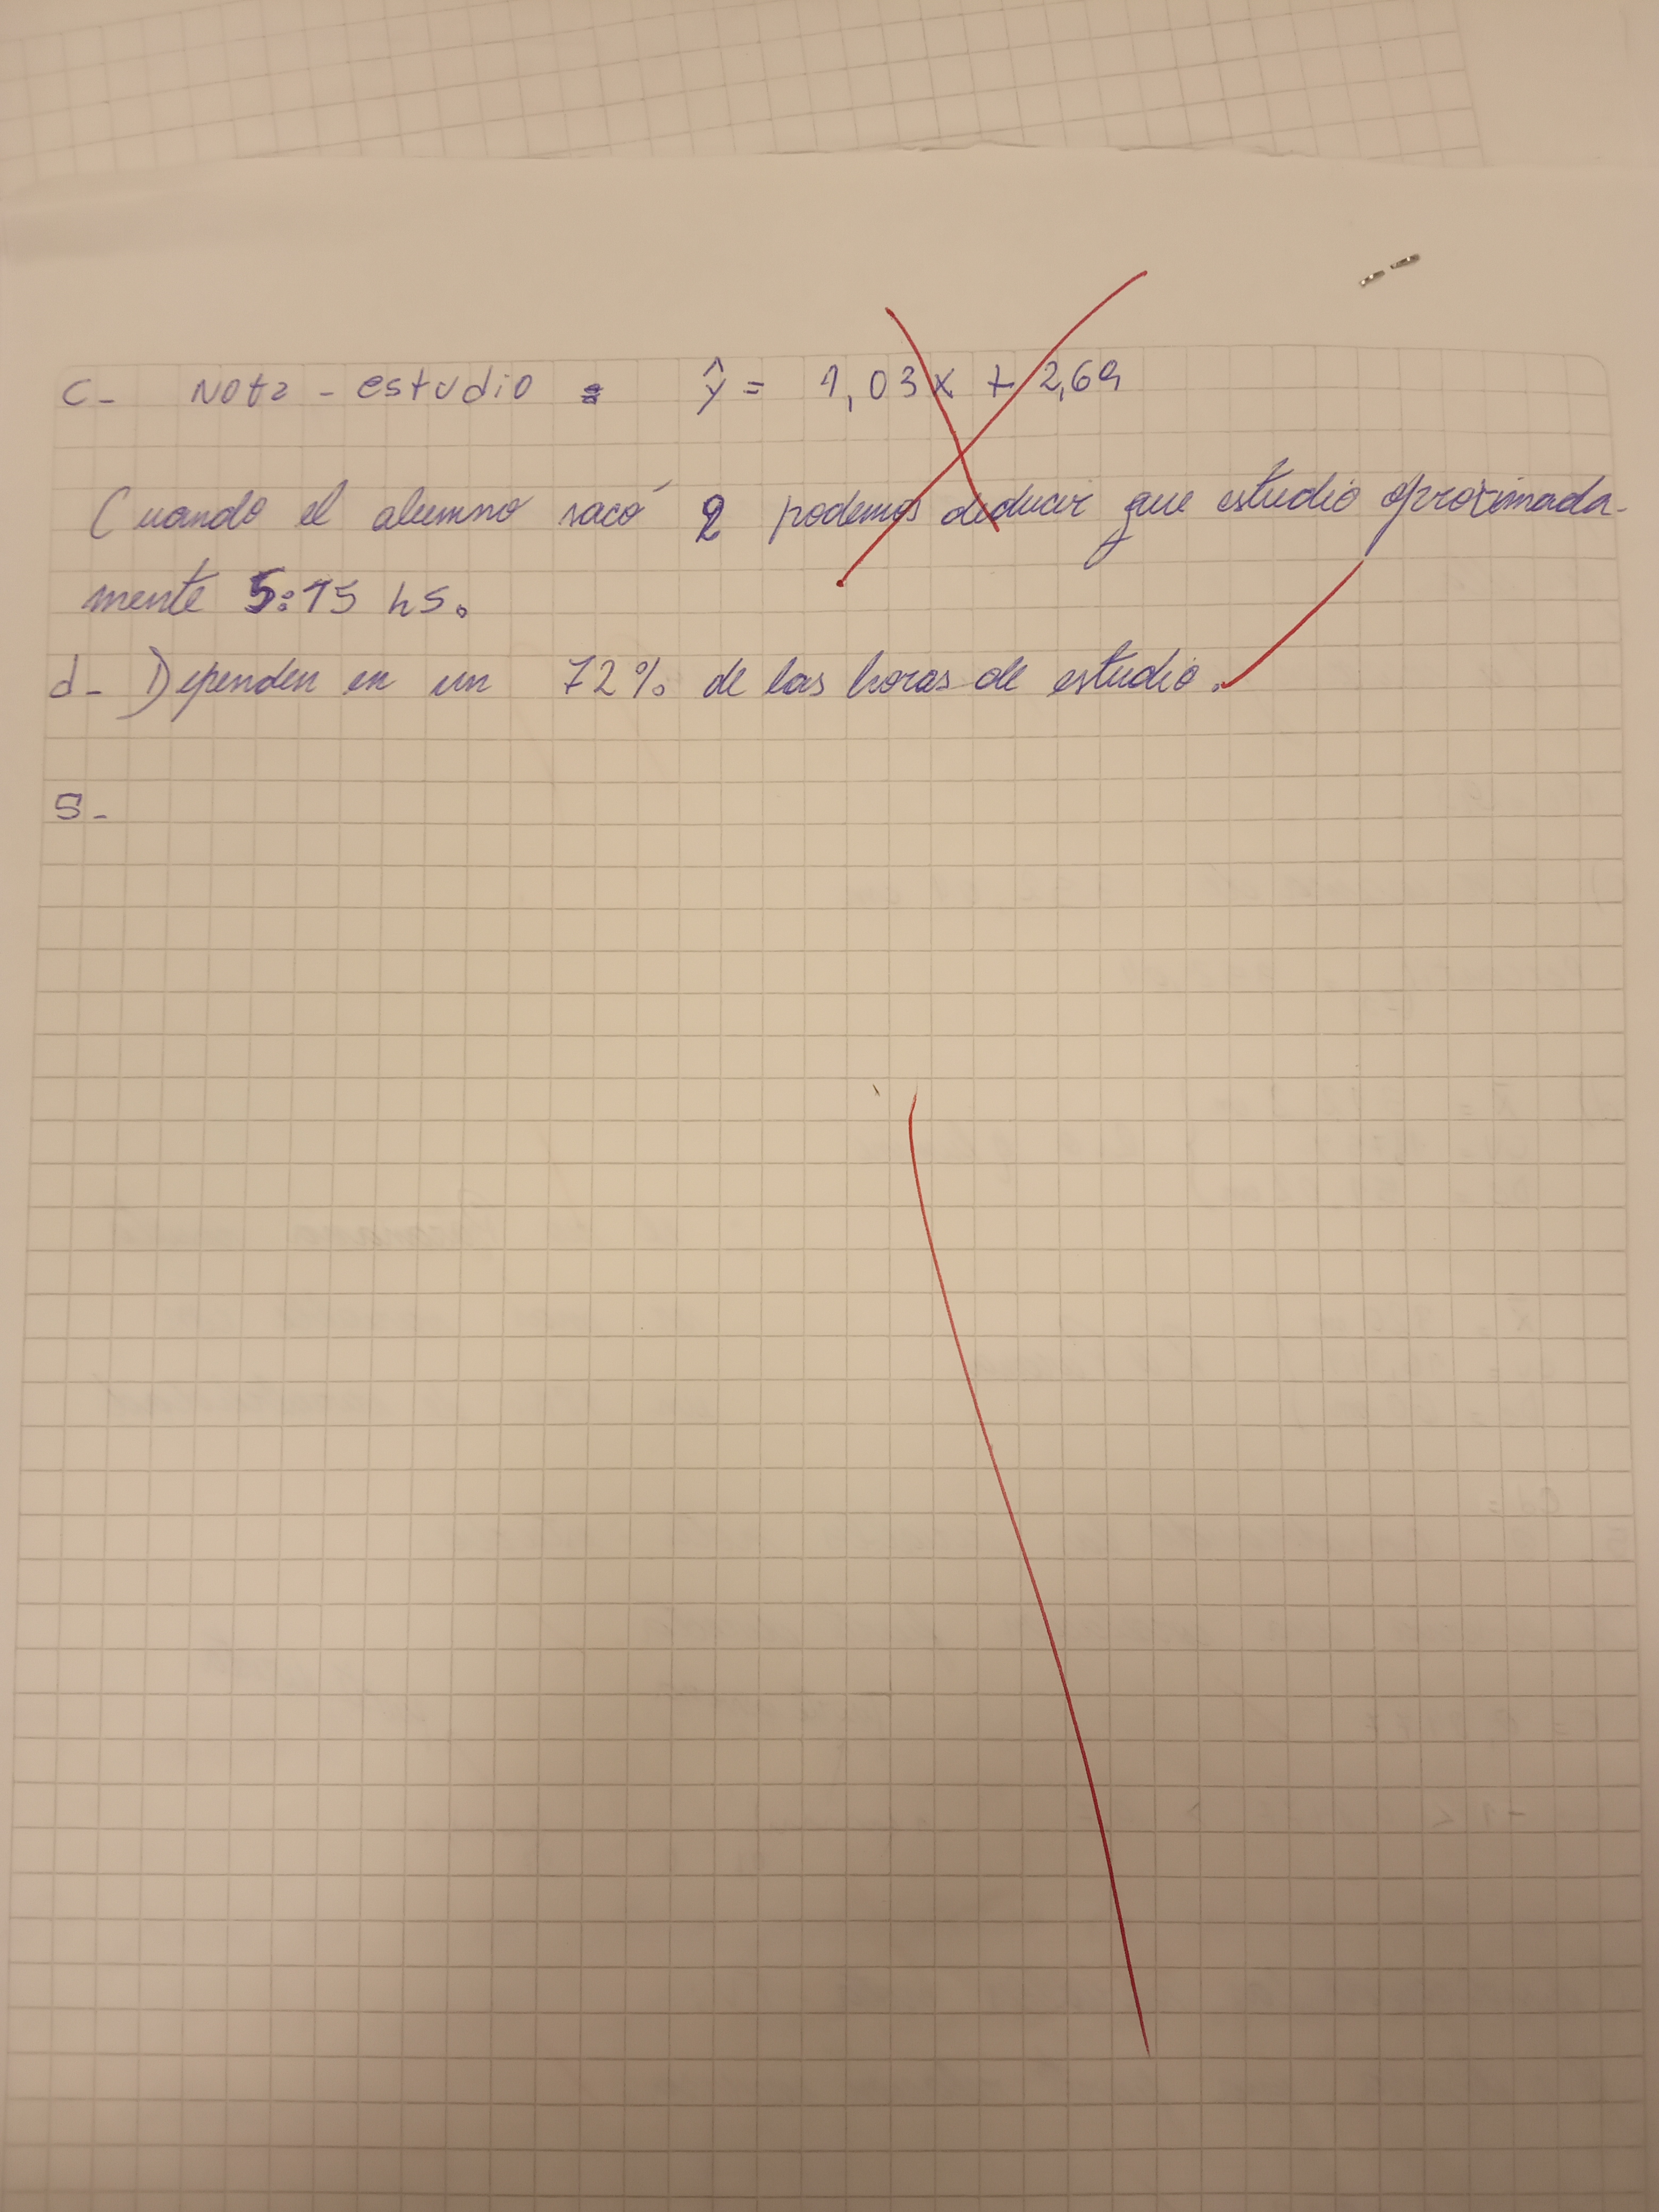 c- Nota - estudio = ŷ = 1,03x + 2,69
Cuando el alumno sacó 2 podemos deducir que estudio aproximada-
mente 5:15 hs.
d- Dependen en un 72% de las horas de estudio.
5-